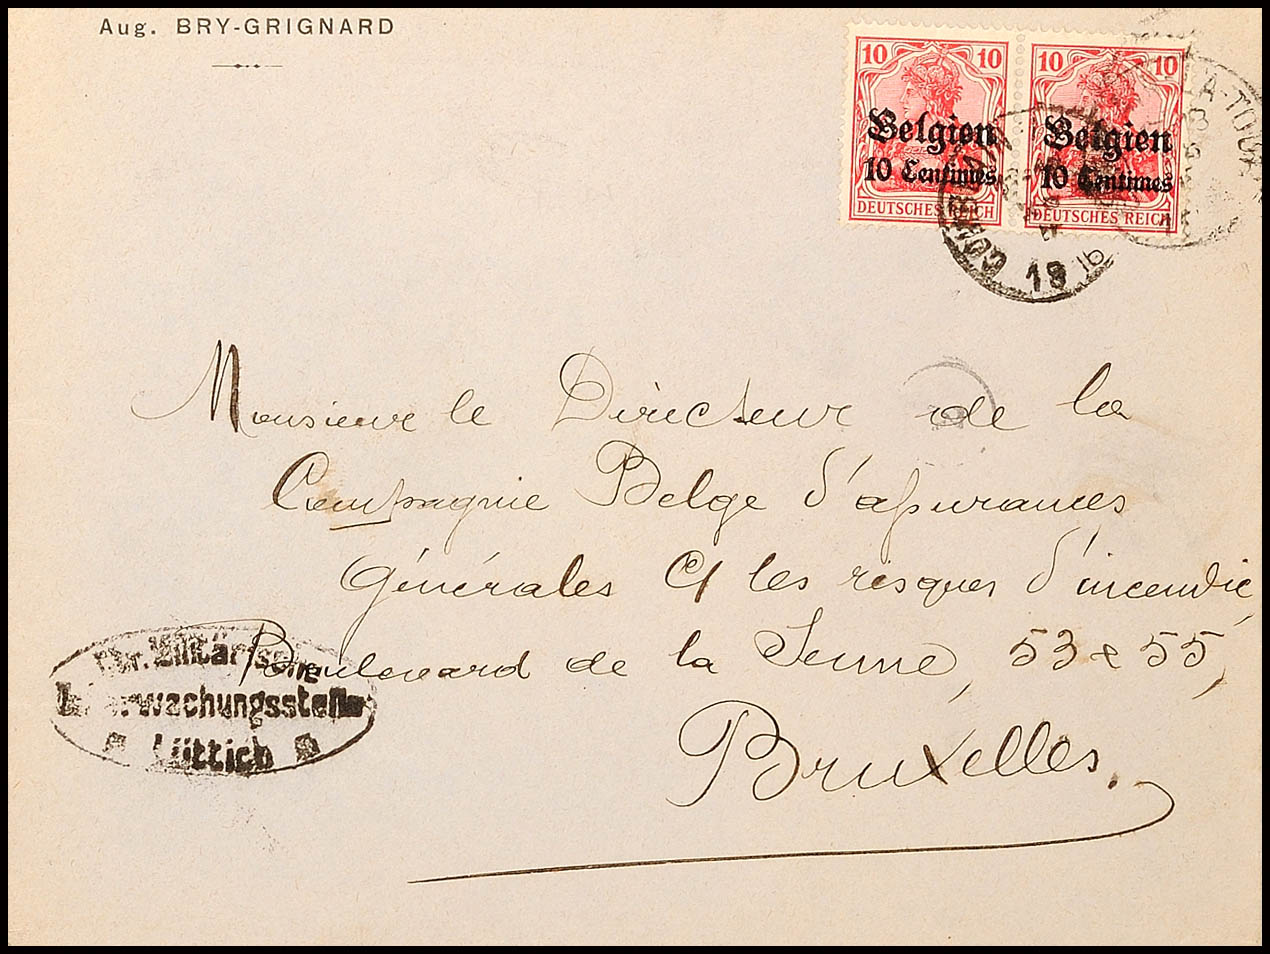 Aug. BRY-GRIGNARD
10 10
Belgien
10 Centimes
DEUTSCHES REICH
10 10
Belgien
10 Centimes
DEUTSCHES REICH
18
Monsieur le Directeur de la
Compagnie Belge d'assurances
Générales Ct les risques d'incendie,
Boulevard de la Senne, 53 & 55,
Bruxelles.
Militärische
Überwachungsstelle
Lüttich